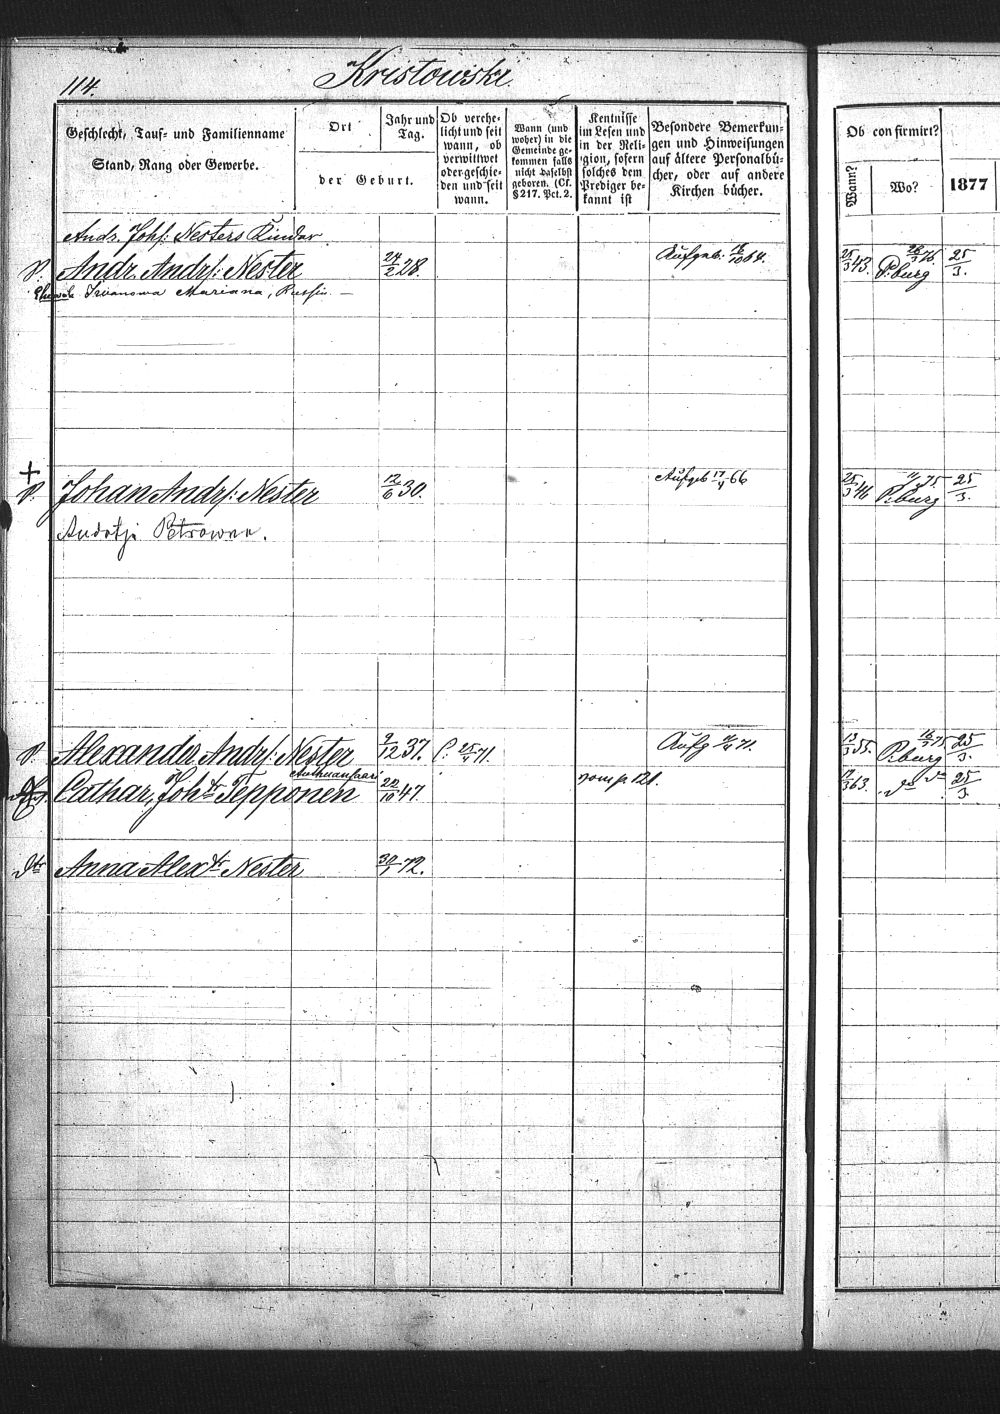 114.
Kristowski.
Geschlecht, Tauf- und Familienname
Stand, Rang oder Gewerbe.
Ort
der Geburt.
Jahr und
Tag.
Ob verehe-
licht und seit
wann, ob
verwittwet
oder geschie-
den und seit
wann.
Wann (und
woher) in die
Gemeinde ge-
kommen falls
nicht daselbst
geboren. (Cf.
§ 217. Pct. 2.
Kentnisse
im Lesen und
in der Reli-
gion, sofern
solches dem
Prediger be-
kannt ist
Besondere Bemerkun-
gen und Hinweisungen
auf ältere Personalbü-
cher, oder auf andere
Kirchen bücher.
Ob confirmirt?
Wann?
Wo?
1877
Andr. Johs: Nesters Kinder
S. Andr. Andrs: Nester 24/2 28. Aufgeb. 18/10 64. 25/3 43. P.burg 25/3.
Iwanowa Mariana, Russin. —
+
S. Johan Andrs: Nester 12/6 30. Aufgeb 17/4 66 P.burg 75. 25/3.
Audotji Petrowna.
S. Alexander Andrs: Nester 9/12 37. 25/4 71. Aufg 71. 13/3 55. P.burg 75 25/3.
Cathar, Johtr Tepponen 22/10 47. 63. do 25/3
dtr Anna Alextr Nester 30/1 72.